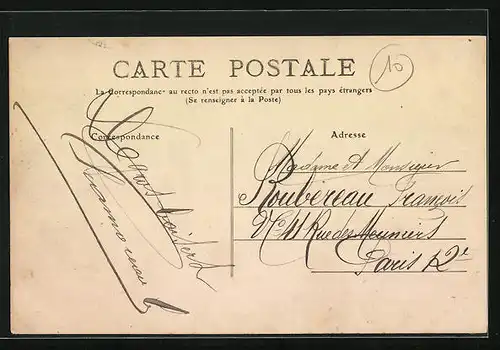 10
CARTE POSTALE
La Correspondance au recto n'est pas acceptée par tous les pays étrangers
(Se renseigner à la Poste)
Correspondance
Adresse
Madame et Monsieur
Roubereau François
41 Rue des Meuniers
Paris 12e